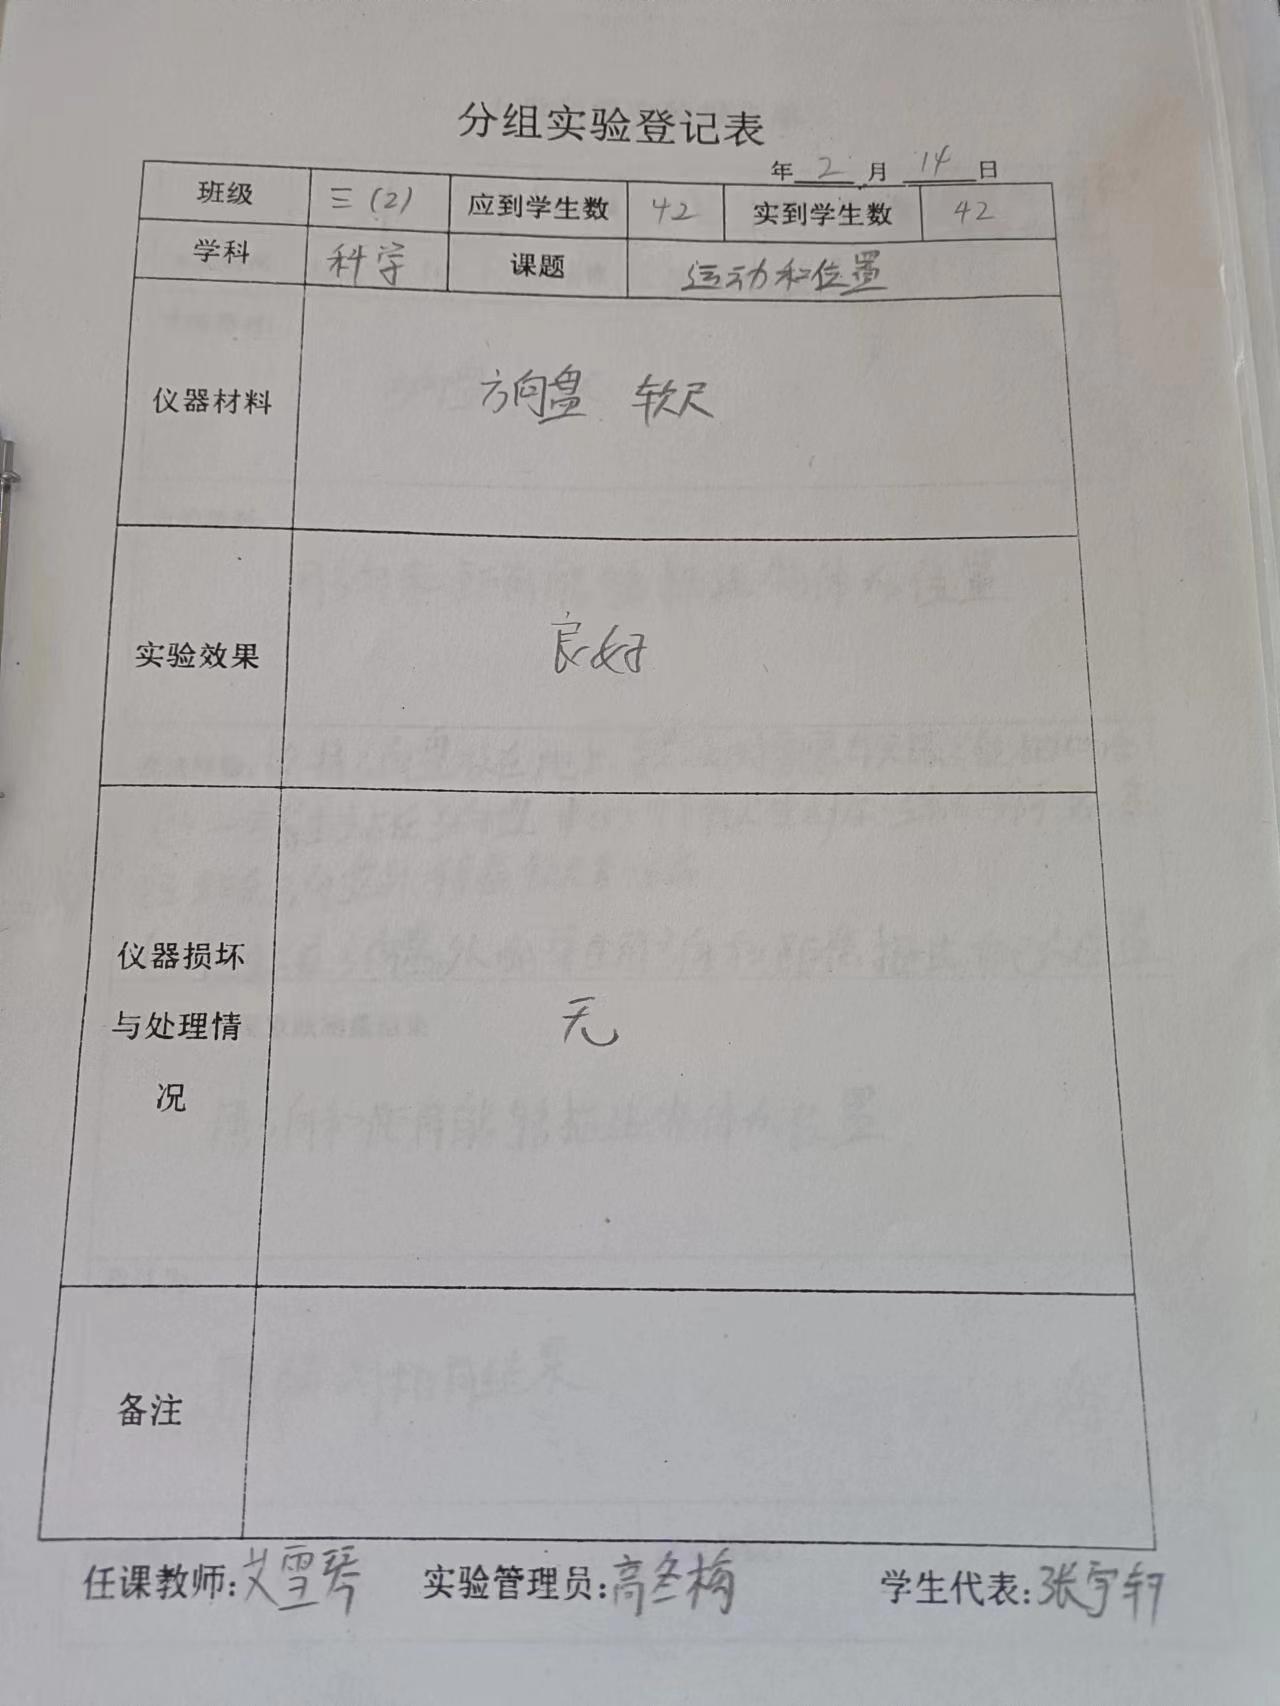 分组实验登记表
年 2 月 14 日
班级 三(2) 应到学生数 42 实到学生数 42
学科 科学 课题 运动和位置
仪器材料 方向盘 软尺
实验效果 良好
仪器损坏
与处理情 无
况
备注
任课教师:艾雪琴 实验管理员:高冬梅 学生代表:张宇轩